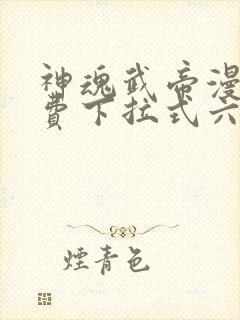 神魂武帝漫
费下拉式六
煙青色